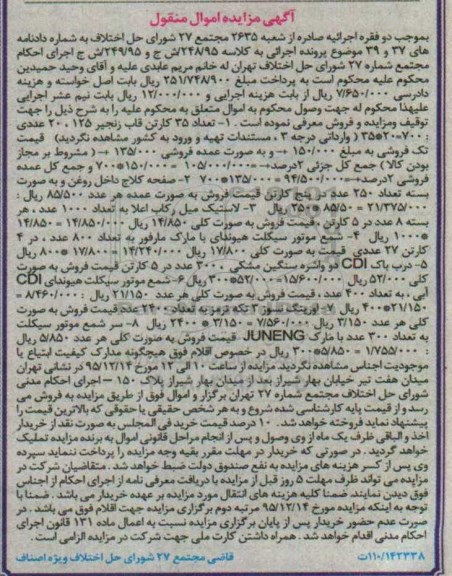 آگهی مزایده اموال منقول
بموجب دو فقره اجرائیه صادره از شعبه ۲۶۳۵ مجتمع ۲۷ شورای حل اختلاف به شماره دادنامه
های ۳۷ و ۳۹ موضوع پرونده اجرائی به کلاسه ۲۴۸/۹۵ش ج و ۲۴۹/۹۵ش ج اجرای احکام
مجتمع شماره ۲۷ شورای حل اختلاف تهران له خانم مریم عابدی علیه و آقای وحید حمیدین
محکوم علیه محکوم است به پرداخت مبلغ ۲۵۱/۷۴۸/۹۰۰ ریال بابت اصل خواسته و هزینه
دادرسی ۷/۶۵۰/۰۰۰ ریال از بابت هزینه اجرایی و ۱۲/۰۰۰/۰۰۰ ریال بابت نیم عشر اجرایی
علیهذا محکوم له جهت وصول محکوم به اموال متعلق به محکوم علیه را به شرح ذیل را جهت
توقیف ومزایده و فروش معرفی نموده است . ۱- تعداد ۳۵ کارتن قاب زنجیر ۱۲۵ ، ۲۰ عددی
: ۷۰۰=۲۰*۳۵ ( وارداتی درجه ۳ ، مستندات تهیه و ورود به کشور مشاهده نگردید) قیمت
تک فروشی به مبلغ ۱۵۰/۰۰۰ ← و به صورت عمده فروشی ۱۳۵/۰۰۰ ← ( مشروط بر مجاز
بودن کالا) جمع کل جزئی ۲درصد→ ۱۰۵/۰۰۰/۰۰۰=۱۵۰/۰۰۰*۷۰۰ و جمع کل عمده
فروشی ۲درصد→ ۹۴/۵۰۰/۰۰۰=۱۳۵/۰۰۰*۷۰۰ ۲- صفحه کلاچ داخل روغن و به صورت
بسته تعداد ۲۵۰ عدد در پنج کارتن قیمت فروش به صورت عمده هر عدد ۸۵/۵۰۰ ریال :
۲۱/۳۷۵/۰۰۰=۸۵/۵۰۰*۲۵۰ ریال ۳- لاستیک میل رکاب اعلا به تعداد ۱۰۰۰ عدد ، هر
بسته ۸ عدد در ۵ کارتن ، قیمت فروش به صورت کلی ۱۴/۸۵۰ ریال ۱۴/۸۵۰/۰۰۰ = ۱۴/۸۵۰
*۱۰۰۰ ریال ۴- شمع موتور سیکلت هیوندای با مارک مارفور به تعداد ۸۰۰ عدد ، در ۴
کارتن ۲۷ عددی قیمت به صورت کلی ۱۷/۸۰۰ ریال ۱۴/۲۴۰/۰۰۰=۱۷/۸۰۰*۸۰۰ ریال
۵- درب باک CDI دو واشره سنگین مشکی ، ۳۰۰ عدد در ۵ کارتن قیمت فروش به صورت
کلی ۵۲/۰۰۰ ریال ۱۵/۶۰۰/۰۰۰=۵۲/۰۰۰*۳۰۰ ریال ۶- شمع موتور سیکلت هیوندای CDI
آبی ، به تعداد ۴۰۰ عدد ، قیمت فروش به صورت کلی هر عدد ۲۱/۱۵۰ ریال : ۸۴۶۰/۰۰۰=
۲۱/۱۵۰*۴۰۰ ریال ۷- اورینگ نسوز ۳ تکه ترمز به تعداد ۲۴۰۰ عدد قیمت فروش به صورت
کلی هر عدد ۳/۱۵۰ ریال ۷/۵۶۰/۰۰۰=۳/۱۵۰*۲۴۰۰ ریال ۸- سر شمع موتور سیکلت
به تعداد ۳۰۰ عدد با مارک JUNENG قیمت فروش به صورت کلی هر عدد ۵/۸۵۰ ریال
۱/۷۵۵/۰۰۰=۵/۸۵۰*۳۰۰ ریال در خصوص اقلام فوق هیچگونه مدارک کیفیت ابتیاع یا
موجودیت اجناس مشاهده نگردید. مزایده از ساعت ۱۰ الی ۱۲ مورخ ۹۵/۱۲/۱۴ در نشانی تهران
میدان هفت تیر خیابان بهار شیراز بعد از میدان بهار شیراز پلاک ۱۵۰ – اجرای احکام مدنی
شورای حل اختلاف مجتمع شماره ۲۷ تهران برگزار و اموال فوق از طریق مزایده به فروش می
رسد و از قیمت پایه کارشناسی شده شروع و به هر شخص حقیقی یا حقوقی که بالاترین قیمت را
پیشنهاد نماید فروخته خواهد شد . ۱۰ درصد قیمت خرید فی المجلس به صورت نقد از خریدار
اخذ و الباقی ظرف یک ماه از وی وصول و پس از انجام مراحل قانونی اموال به برنده مزایده تملیک
خواهد گردید . در صورتی که خریدار در مهلت مقرر بقیه وجه مزایده را پرداخت ننماید سپرده
وی پس از کسر هزینه های مزایده به نفع صندوق دولت ضبط خواهد شد . متقاضیان شرکت در
مزایده می تواند ظرف مهلت ۵ روز قبل از مزایده با دریافت معرفی نامه از اجرای احکام از اجناس
فوق دیدن نمایند. ضمنا کلیه هزینه های انتقال مورد مزایده بر عهده خریدار می باشد . ضمنا با
توجه به اینکه مزایده مورخ ۹۵/۱۲/۱۴ مرتبه دوم برگزاری مزایده جهت اقلام فوق می باشد . در
صورت عدم حضور خریدار پس از پایان برگزاری مزایده نسبت به اعمال ماده ۱۳۱ قانون اجرای
احکام مدنی اقدام خواهد شد . همراه داشتن کارت ملی جهت شرکت در مزایده الزامی است .
۱۱۰/۱۴۲۳۳۸ت قاضی مجتمع ۲۷ شورای حل اختلاف ویژه اصناف